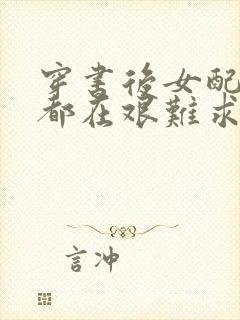 穿書後女配
都在艱難求
言沖